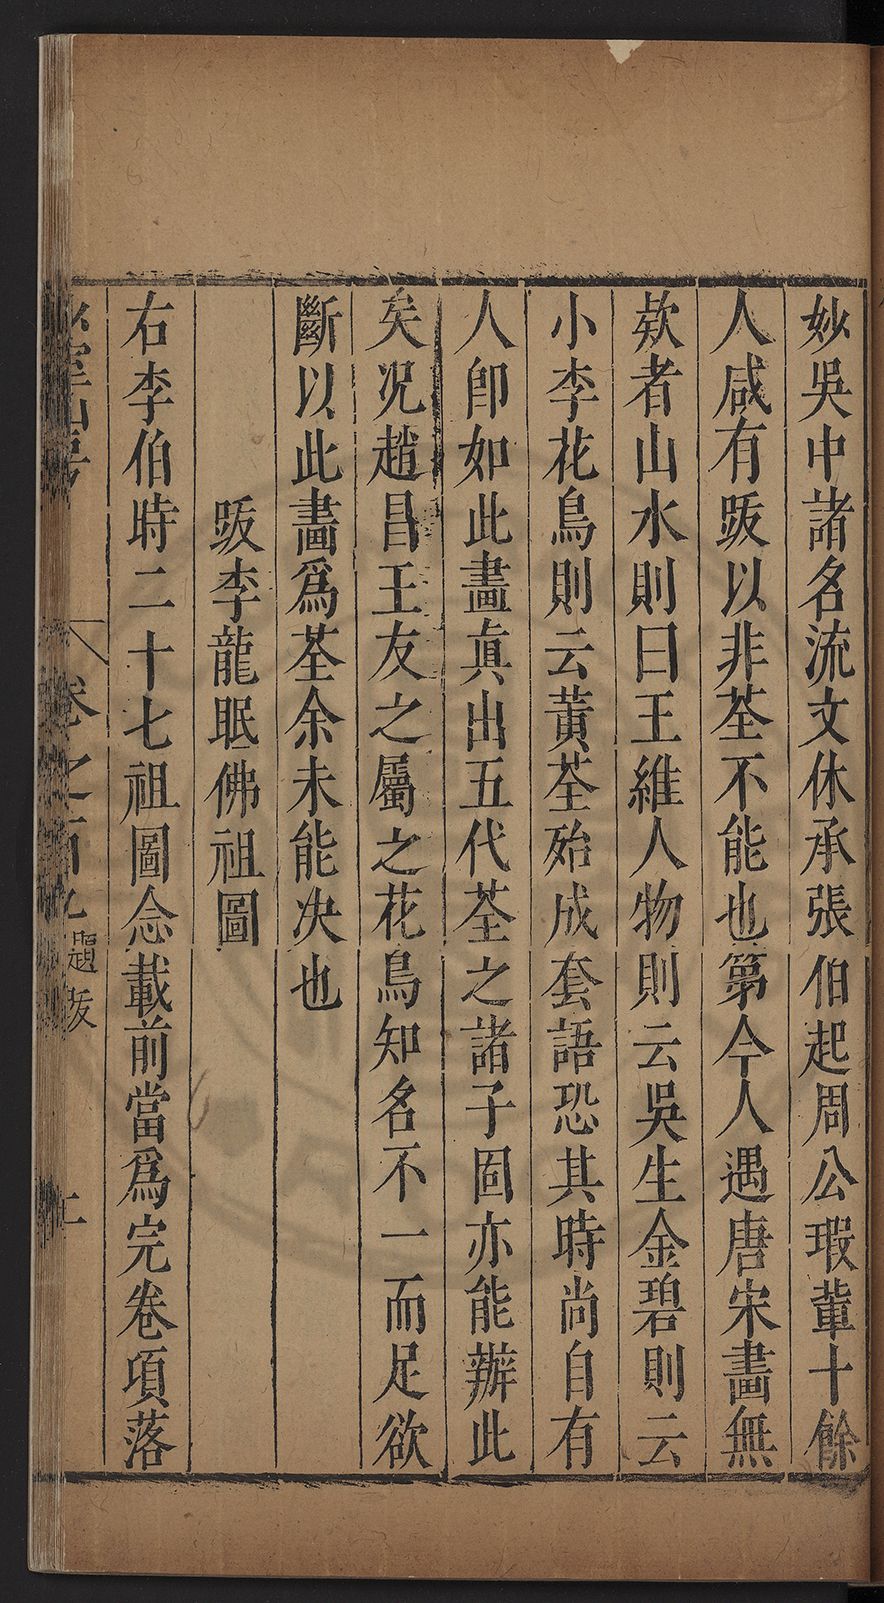 妙吳中諸名流文休承張伯起周公瑕輩十餘
人咸有䟦以非荃不能也第今人遇唐宋畫無
欵者山水則曰王維人物則云吳生金碧則云
小李花鳥則云黃荃殆成套語恐其時尚自有
人卽如此畫眞出五代荃之諸子固亦能辦此
矣况趙昌王友之屬之花鳥知名不一而足欲
斷以此畫爲荃余未能决也
䟦李龍眠佛祖圖
右李伯時二十七祖圖念載前當爲完卷項落
卷之百九 題䟦